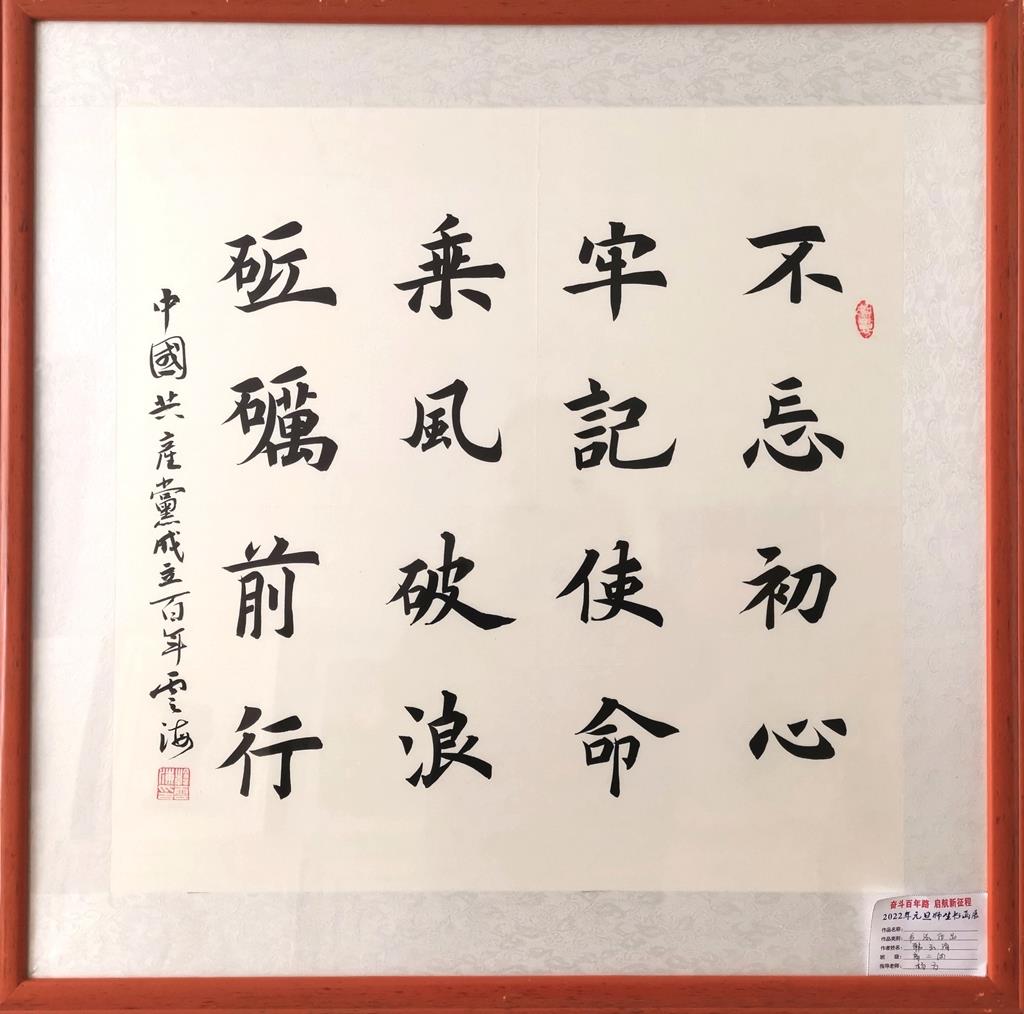 不忘初心
牢記使命
乗風破浪
砥礪前行
中國共產黨成立百年雲海
奋斗百年路 启航新征程
2022年元旦师生书画展
作品名称：
作品类别：书法作品
作者姓名：韩云海
班 级：
指导老师：